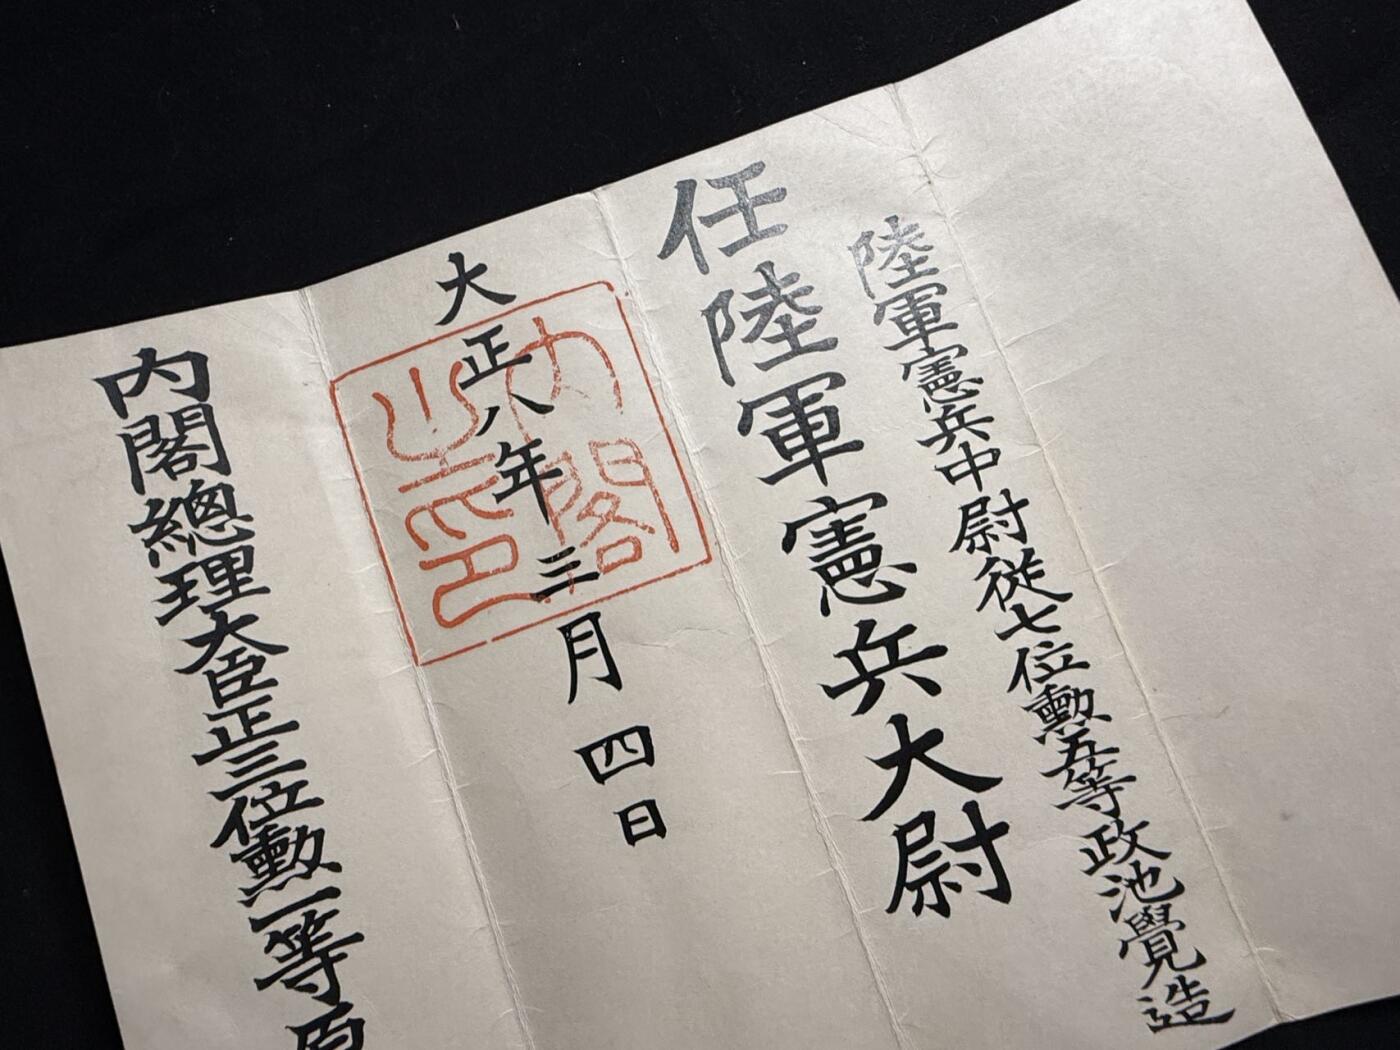 陸軍憲兵中尉従七位勲五等政池覺造
任陸軍憲兵大尉
大正八年三月四日
内閣之印
内閣總理大臣正三位勲一等原